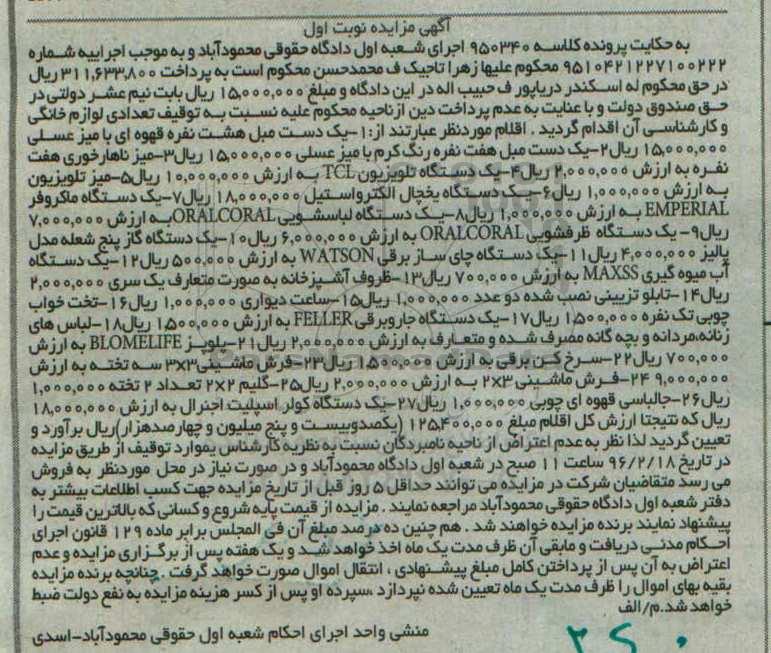 آگهی مزایده نوبت اول
به حکایت پرونده کلاسه ۹۵۰۳۴۰ اجرای شعبه اول دادگاه حقوقی محمودآباد و به موجب اجراییه شماره
۹۵۱۰۴۲۱۲۲۷۱۰۰۲۲۲ محکوم علیها زهرا تاجیک ف محمدحسن محکوم است به پرداخت ۳۱۱,۶۳۳,۸۰۰ ریال
در حق محکوم له اسکندر دریاپور ف حبیب اله در این دادگاه و مبلغ ۱۵,۰۰۰,۰۰۰ ریال بابت نیم عشر دولتی در
حق صندوق دولت و با عنایت به عدم پرداخت دین ازناحیه محکوم علیه نسبت به توقیف تعدادی لوازم خانگی
و کارشناسی آن اقدام گردید . اقلام موردنظر عبارتند از:۱-یک دست مبل هشت نفره قهوه ای با میز عسلی
۱۵,۰۰۰,۰۰۰ ریال۲-یک دست مبل هفت نفره رنگ کرم با میز عسلی ۱۵,۰۰۰,۰۰۰ ریال۳-میز ناهارخوری هفت
نفره به ارزش ۲,۰۰۰,۰۰۰ ریال۴-یک دستگاه تلویزیون TCL به ارزش ۱۰,۰۰۰,۰۰۰ ریال۵-میز تلویزیون
به ارزش ۱,۰۰۰,۰۰۰ ریال۶-یک دستگاه یخچال الکترواستیل ۱۸,۰۰۰,۰۰۰ ریال۷-یک دستگاه ماکروفر
EMPERIAL به ارزش ۱,۰۰۰,۰۰۰ ریال۸-یک دستگاه لباسشویی ORALCORAL به ارزش ۷,۰۰۰,۰۰۰
ریال۹- یک دستگاه ظرفشویی ORALCORAL به ارزش ۶,۰۰۰,۰۰۰ ریال۱۰-یک دستگاه گاز پنج شعله مدل
پالیز ۴,۰۰۰,۰۰۰ ریال۱۱-یک دستگاه چای ساز برقی WATSON به ارزش ۵۰۰,۰۰۰ ریال۱۲-یک دستگاه
آب میوه گیری MAXSS به ارزش ۷۰۰,۰۰۰ ریال۱۳-ظروف آشپزخانه به صورت متعارف یک سری ۲,۰۰۰,۰۰۰
ریال۱۴-تابلو تزیینی نصب شده دو عدد ۱,۰۰۰,۰۰۰ ریال۱۵-ساعت دیواری ۱,۰۰۰,۰۰۰ ریال۱۶-تخت خواب
چوبی تک نفره ۱,۵۰۰,۰۰۰ ریال۱۷-یک دستگاه جاروبرقی FELLER به ارزش ۱,۵۰۰,۰۰۰ ریال۱۸-لباس های
زنانه،مردانه و بچه گانه مصرف شده و متعارف به ارزش ۲,۰۰۰,۰۰۰ ریال۲۱-بلویز BLOMELIFE به ارزش
۷۰۰,۰۰۰ ریال۲۲-سرخ کن برقی به ارزش ۱,۵۰۰,۰۰۰ ریال۲۳-فرش ماشینی۳×۳ سه تخته به ارزش
۹,۰۰۰,۰۰۰ ۲۴-فرش ماشینی ۳×۲ به ارزش ۲,۰۰۰,۰۰۰ ریال۲۵-گلیم ۲×۲ تعداد ۲ تخته ۱,۰۰۰,۰۰۰
ریال۲۶-جالباسی قهوه ای چوبی ۱,۰۰۰,۰۰۰ ریال۲۷-یک دستگاه کولر اسپلیت اجنرال به ارزش ۱۸,۰۰۰,۰۰۰
ریال که نتیجتا ارزش کل اقلام مبلغ ۱۲۵,۴۰۰,۰۰۰ (یکصدوبیست و پنج میلیون و چهارصدهزار)ریال برآورد و
تعیین گردید لذا نظر به عدم اعتراض از ناحیه نامبردگان نسبت به نظریه کارشناس یموارد توقیف از طریق مزایده
در تاریخ ۹۶/۲/۱۸ ساعت ۱۱ صبح در شعبه اول دادگاه محمودآباد و در صورت نیاز در محل موردنظر به فروش
می رسد متقاضیان شرکت در مزایده می توانند حداقل ۵ روز قبل از تاریخ مزایده جهت کسب اطلاعات بیشتر به
دفتر شعبه اول دادگاه حقوقی محمودآباد مراجعه نمایند . مزایده از قیمت پایه شروع و کسانی که بالاترین قیمت را
پیشنهاد نمایند برنده مزایده خواهند شد . هم چنین ده درصد مبلغ آن فی المجلس برابر ماده ۱۲۹ قانون اجرای
احکام مدنی دریافت و مابقی آن ظرف مدت یک ماه اخذ خواهد شد و یک هفته پس از برگزاری مزایده و عدم
اعتراض به آن پس از پرداختن کامل مبلغ پیشنهادی ، انتقال اموال صورت خواهد گرفت . چنانچه برنده مزایده
بقیه بهای اموال را ظرف مدت یک ماه تعیین شده نپردازد ،سپرده او پس از کسر هزینه مزایده به نفع دولت ضبط
خواهد شد.م/الف
منشی واحد اجرای احکام شعبه اول حقوقی محمودآباد-اسدی